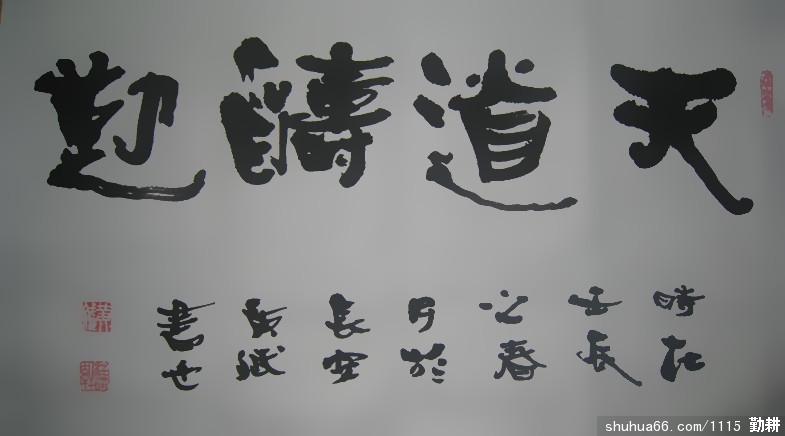 天道醻勤
時在
壬辰
之春
月於
長安
書也
shuhua66.com/1115 勤耕